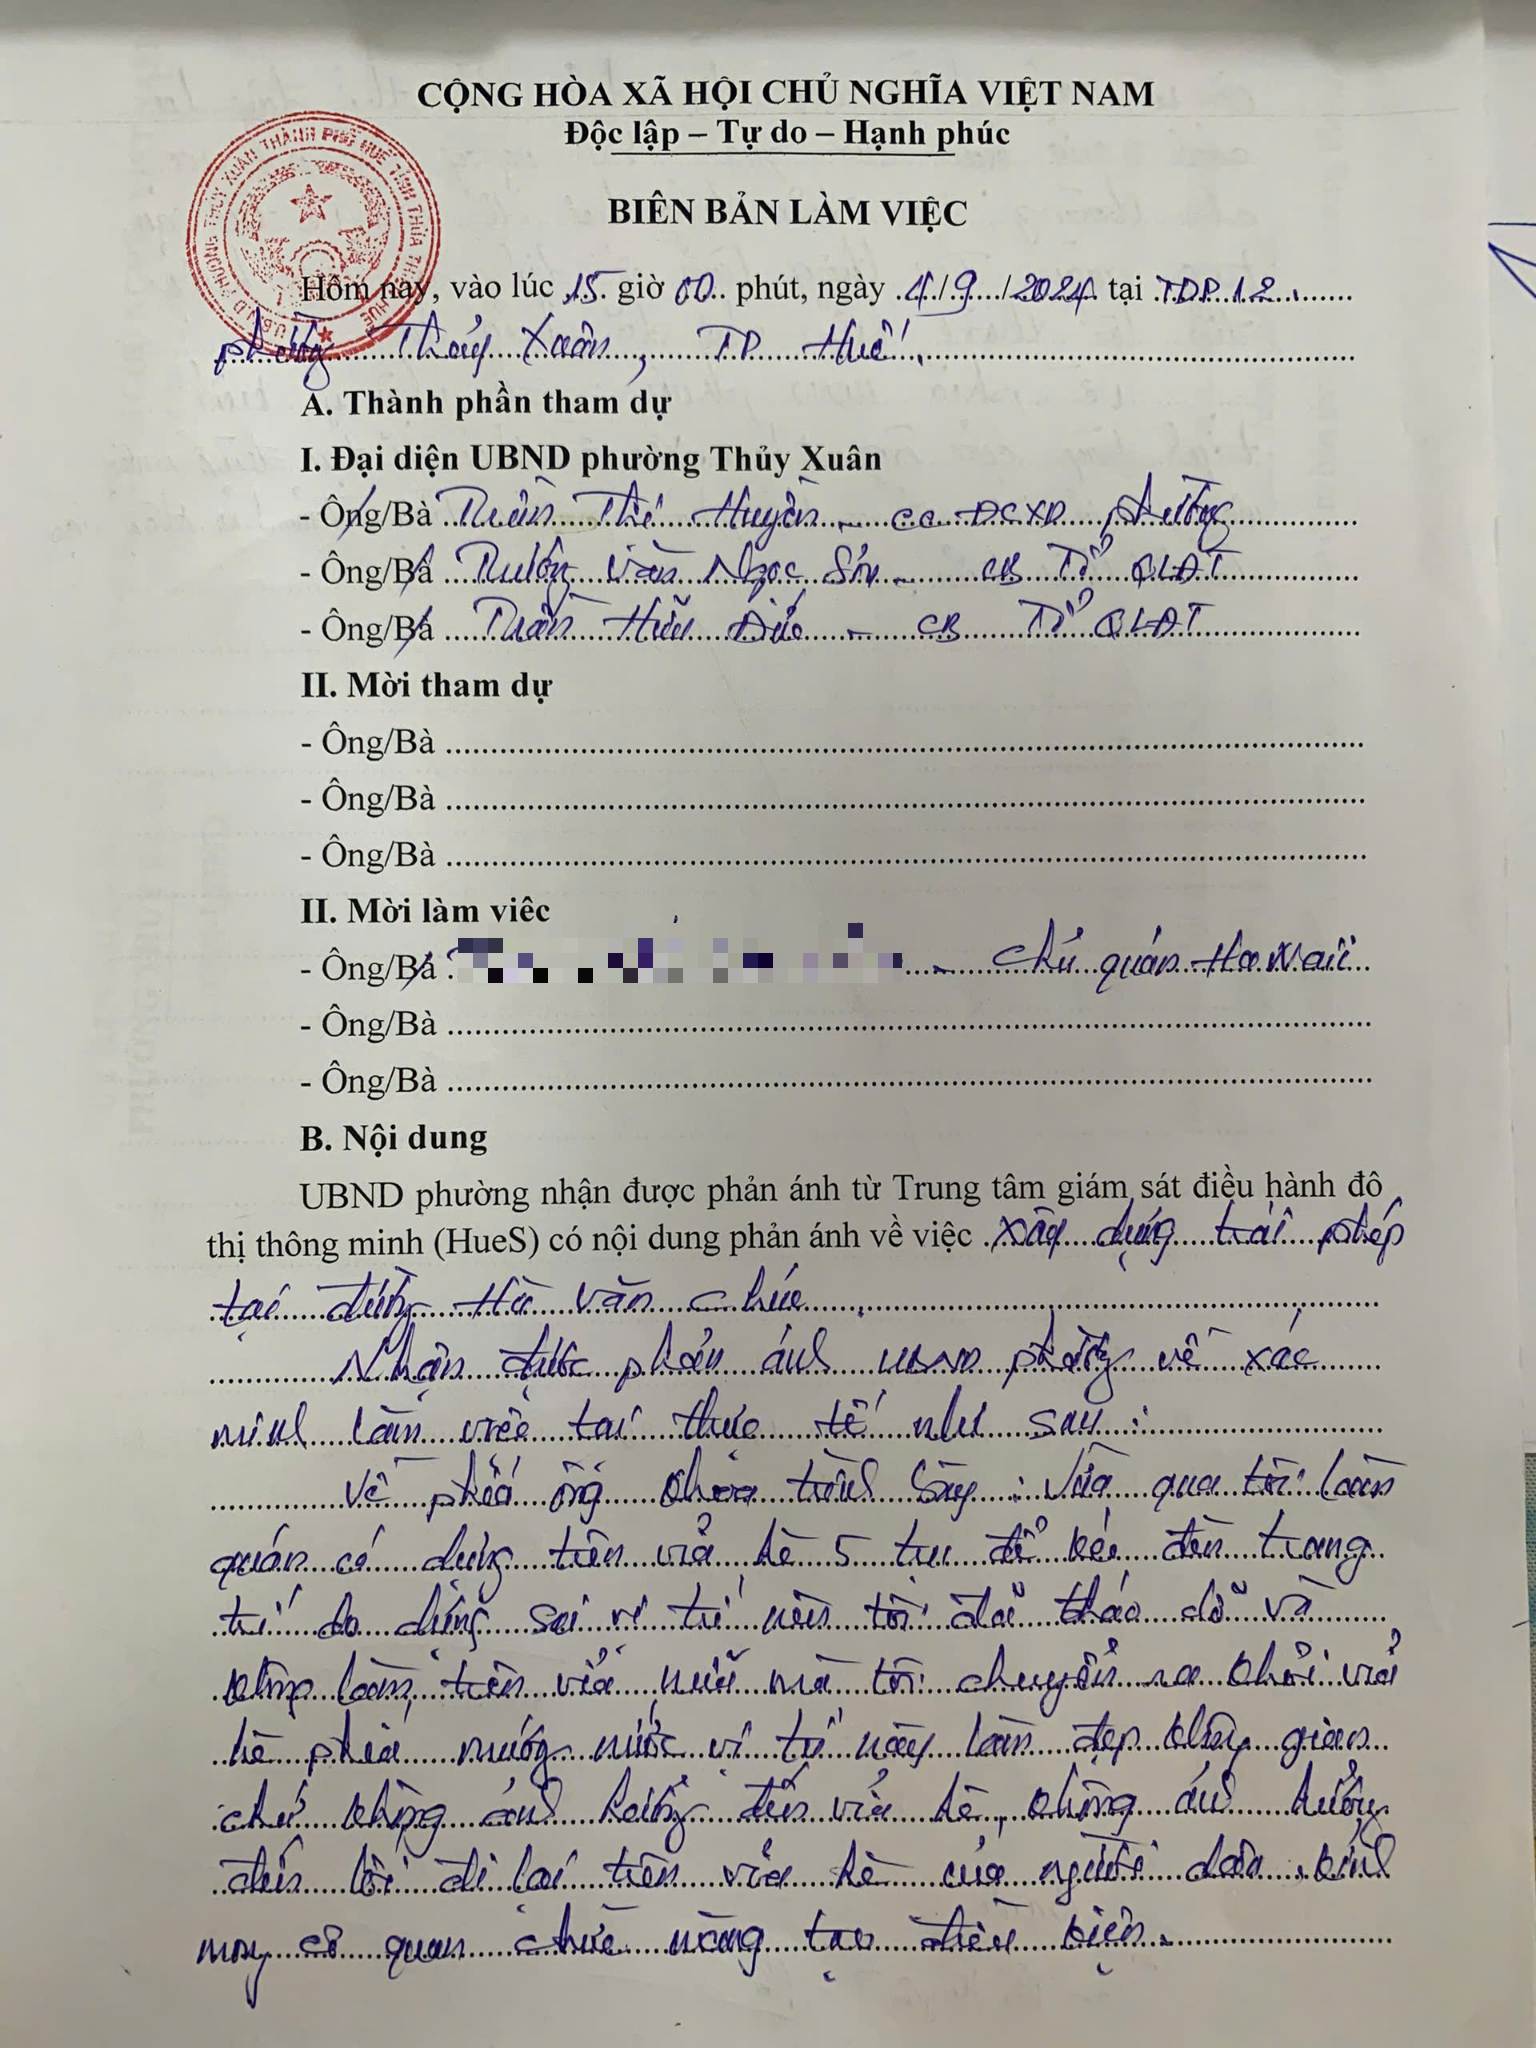 CỘNG HÒA XÃ HỘI CHỦ NGHĨA VIỆT NAM
Độc lập – Tự do – Hạnh phúc
U.B.N.D PHƯỜNG THỦY XUÂN THÀNH PHỐ HUẾ TỈNH THỪA THIÊN HUẾ
BIÊN BẢN LÀM VIỆC
Hôm nay, vào lúc 15 giờ 00 phút, ngày 4/9/2024 tại TDP 12
phường Thủy Xuân, TP Huế.
A. Thành phần tham dự
I. Đại diện UBND phường Thủy Xuân
- Ông/Bà Trần Thị Huyền - CC ĐCXD phường
- Ông/Bà Trương Văn Ngọc Sơn - CB Tổ QLĐT
- Ông/Bà Trần Hữu Đức - CB Tổ QLĐT
II. Mời tham dự
- Ông/Bà
- Ông/Bà
- Ông/Bà
II. Mời làm viêc
- Ông/Bà - Chủ quán Hawaii
- Ông/Bà
- Ông/Bà
B. Nội dung
UBND phường nhận được phản ánh từ Trung tâm giám sát điều hành đô
thị thông minh (HueS) có nội dung phản ánh về việc xây dựng trái phép
tại đường Hà Văn Chúc.
Nhận được phản ánh UBND phường về xác
minh làm việc tại thực tế như sau:
Về phía ông trình bày: Vừa qua tôi làm
quán có dựng trên vỉa hè 5 trụ để kéo đèn trang
trí do dựng sai vị trí nên tôi đã tháo dỡ và
không làm trên vỉa nữa mà tôi chuyển ra khỏi vỉa
hè phía mương nước vị trí này làm đẹp không gian
chứ không ảnh hưởng đến vỉa hè, không ảnh hưởng
đến lối đi lại trên vỉa hè của người dân, kính
mong cơ quan chức năng tạo điều kiện.